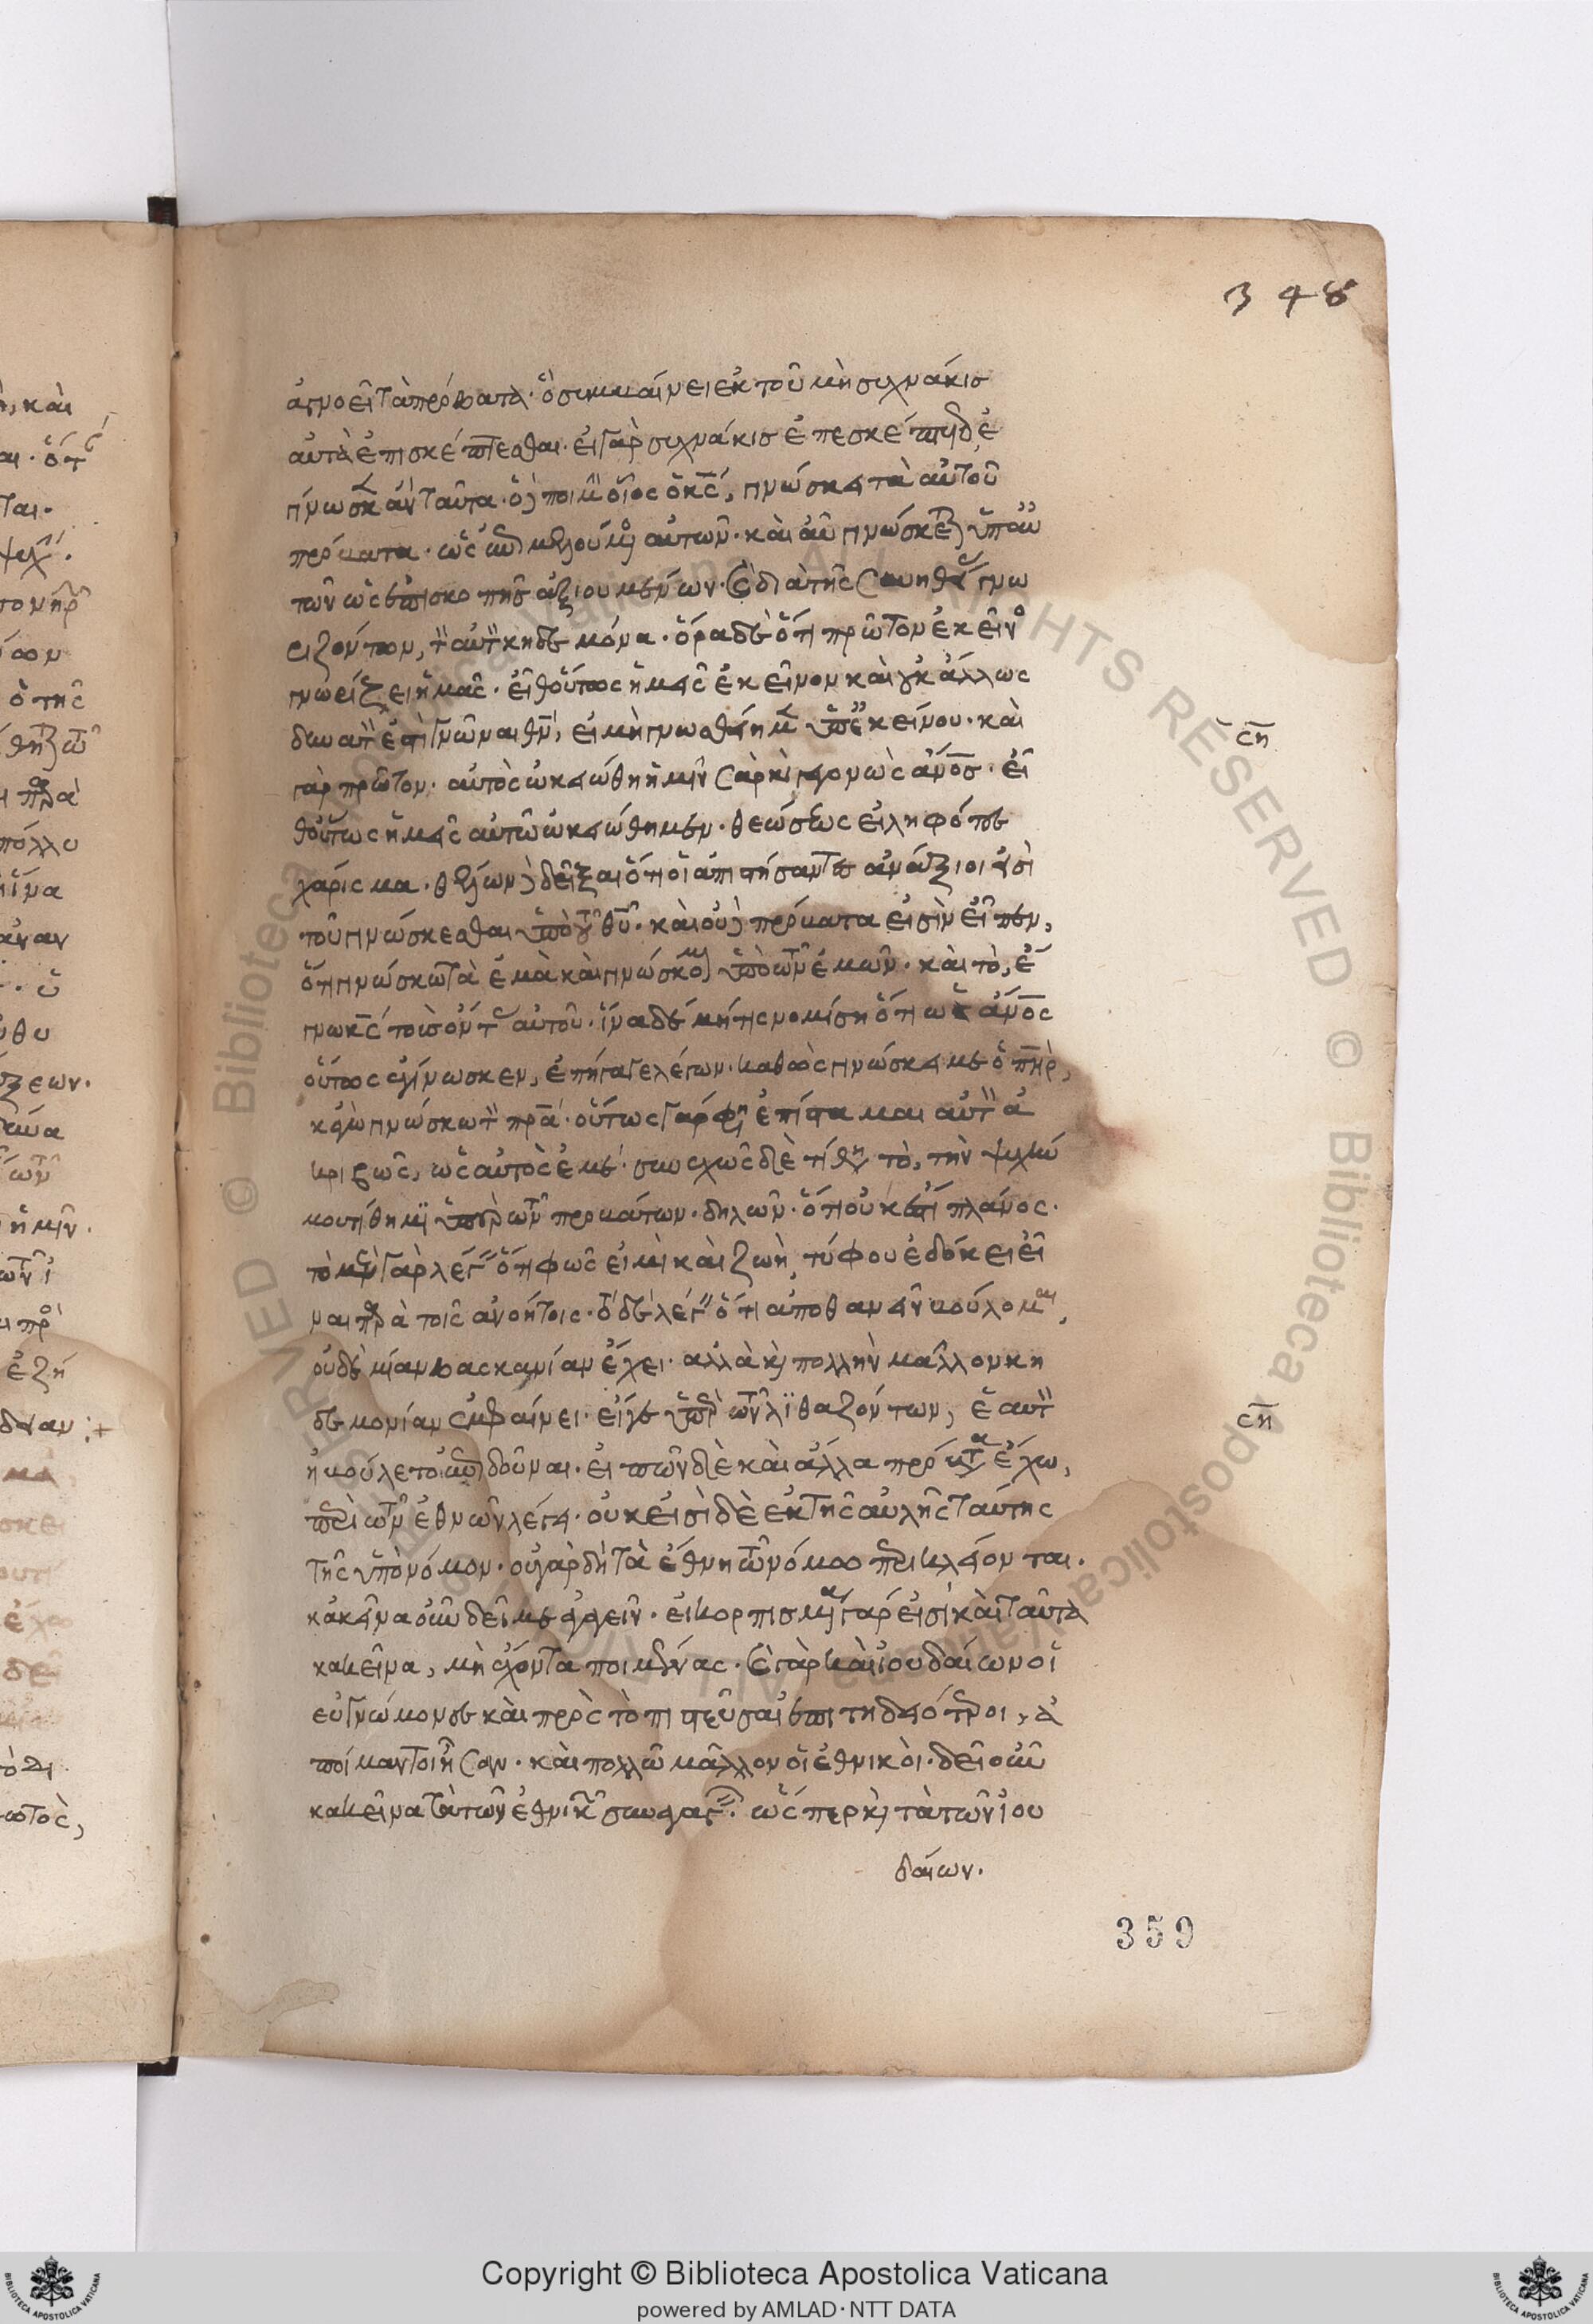 348
ἀγνοεῖ τὰ πρόβατα· ὃ συμβαίνει ἐκ τοῦ μὴ συχνάκις
αὐτὰ ἐπισκέπτεσθαι· εἰ γὰρ συχνάκις ἐπεσκέπτετο, ἐ
γίνωσκεν ἂν ταῦτα· ὁ δὲ ποιμὴν οἷος ὁ κς, γινώσκει τὰ αὐτοῦ
πρόβατα· ὡς ἐπιμελούμενος αὐτῶν· καὶ αὖ γινώσκεται ὑπ' αὐ
τῶν ὡς ἐπισκοπῆς ἀξιουμένων· καὶ διὰ τῆς συνηθείας γνω
ριζόντων, τὸν αὐτῶν κηδεμόνα· ὅρα δὲ ὅτι πρῶτον ἐκεῖνος
γνωρίζει ἡμᾶς· εἶθ' οὕτως ἡμεῖς ἐκεῖνον καὶ οὐκ ἄλλως
δυνατὸν ἐπιγνῶναι θν, εἰ μὴ γνωσθείημεν ὑπ' ἐκείνου· καὶ
γὰρ πρῶτον· αὐτὸς ὠκειώθη ἡμῖν σαρκὶ γεγονὼς ἄνος· εἶ
θ' οὕτως ἡμεῖς αὐτῷ ὠκειώθημεν· θεώσεως εἰληφότες
χάρισμα· θέλων δὲ δεῖξαι ὅτι οἱ ἀπιστήσαντες ἀνάξιοί εἰσι
τοῦ γινώσκεσθαι ὑπὸ τοῦ θυ· καὶ οὐδὲ πρόβατα εἰσὶν εἶπεν,
ὅτι γινώσκω τὰ ἐμὰ καὶ γινώσκομαι ὑπὸ τῶν ἐμῶν· καὶ τὸ, ἔ
γνω κς τοὺς ὄντας αὐτοῦ· ἵνα δὲ μή τις νομίσῃ ὅτι ὡς ἄνος
οὕτως ἐγίνωσκεν, ἐπήγαγε λέγων· καθὼς γινώσκει με ὁ πηρ,
κἀγὼ γινώσκω τὸν πρα· οὕτως γάρ φησι ἐπίσταμαι αὐτὸν ἀ
κριβῶς, ὡς αὐτὸς ἐμέ· συνεχῶς δὲ τίθησι τὸ, τὴν ψυχήν
μου τίθημι ὑπὲρ τῶν προβάτων· δηλῶν· ὅτι οὐκ ἔστι πλάνος·
τὸ μὲν γὰρ λέγειν ὅτι φῶς εἰμὶ καὶ ζωὴ, τύφου ἐδόκει εἶ
ναι παρὰ τοῖς ἀνοήτοις· τὸ δὲ λέγειν ὅτι ἀποθανεῖν βούλομαι,
οὐδὲ μίαν βασκανίαν ἔχει· ἀλλὰ καὶ πολλὴν μᾶλλον κη
δεμονίαν ἐμφαίνει· εἴγε ὑπὲρ τῶν λιθαζόντων, ἑαυτὸν
ἠβούλετο ἐπιδοῦναι· εἰπὼν δὲ καὶ ἄλλα πρόβατα ἔχω,
περὶ τῶν ἐθνῶν λέγει· οὐκ εἰσὶ δὲ ἐκ τῆς αὐλῆς ταύτης
τῆς ὑπὸ νόμον· οὐ γὰρ δὴ τὰ ἔθνη τῷ νόμῳ περικλείονται·
κἀκεῖνα οὖν δεῖ με ἀγαγεῖν· ἐσκορπισμένα γάρ εἰσι καὶ ταῦτα
κἀκεῖνα, μὴ ἔχοντα ποιμένας· καὶ γὰρ καὶ ἰουδαίων οἱ
εὐγνώμονες καὶ πρὸς τὸ πιστεῦσαι ἐπιτηδειότεροι, ἀ
ποίμαντοι ἦσαν· καὶ πολλῷ μᾶλλον οἱ ἐθνικοὶ· δεῖ οὖν
κἀκεῖνα τὰ τῶν ἐθνικῶν συναγαγεῖν· ὥσπερ καὶ τὰ τῶν ἰου
δαίων.
359
Copyright © Biblioteca Apostolica Vaticana
powered by AMLAD·NTT DATA